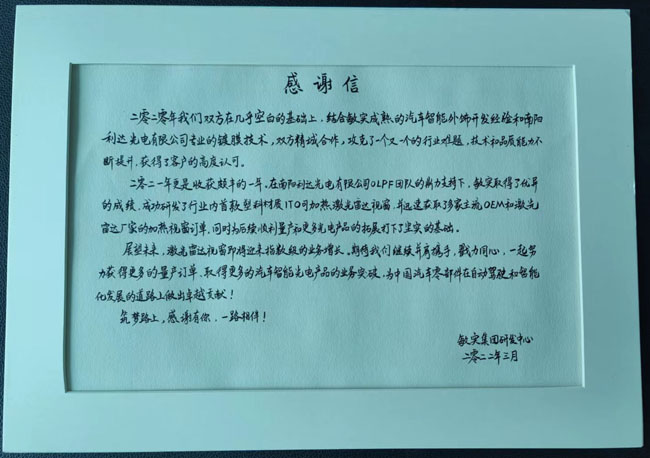 感谢信
二零二零年我们双方在几乎空白的基础上，结合敏实成熟的汽车智能外饰开发经验和南阳
利达光电有限公司专业的镀膜技术，双方精诚合作，攻克了一个又一个的行业难题，技术和品质能力不
断提升，获得了客户的高度认可。
二零二一年更是收获颇丰的一年，在南阳利达光电有限公司OLPF团队的鼎力支持下，敏实取得了优异
的成绩，成功研发了行业内首款塑料材质ITO可加热激光雷达视窗，并迅速获取了多家主流OEM和激光
雷达厂家的加热视窗订单，同时为后续顺利量产和更多光电产品的拓展打下了坚实的基础。
展望未来，激光雷达视窗即将迎来指数级的业务增长。期待我们继续并肩携手，戮力同心，一起努
力获得更多的量产订单，取得更多的汽车智能光电产品的业务突破，为中国汽车零部件在自动驾驶和智能
化发展的道路上做出卓越贡献！
筑梦路上，感谢有你，一路相伴！
敏实集团研发中心
二零二二年三月